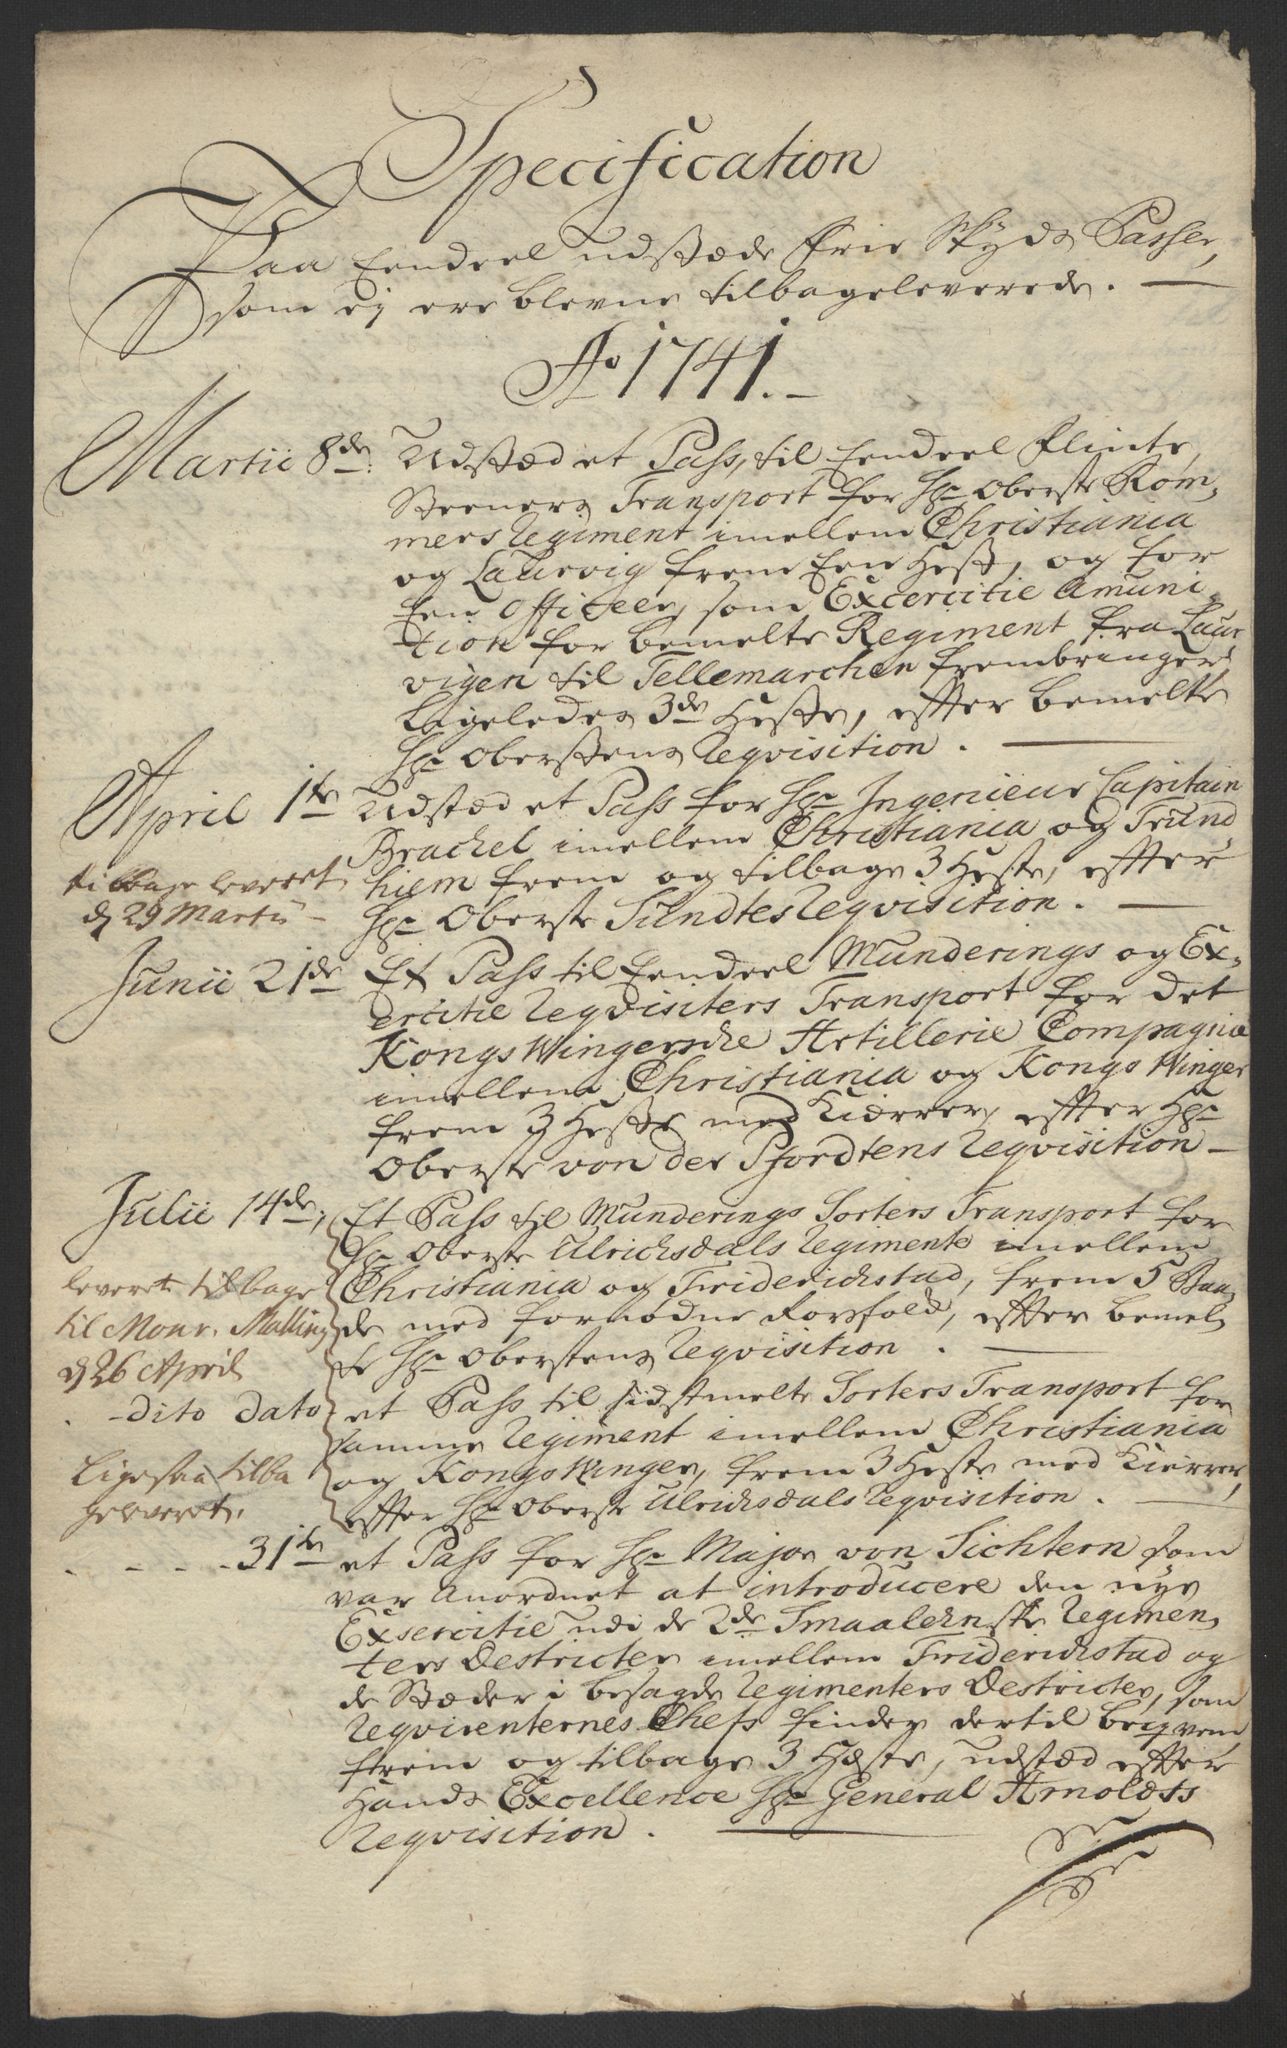 Specification
Paa Eendeel udstædde frie Skyds Passer,
som ey ere blevne tilbageleverede.
Ao 1741.
Martii 8de: Udstæd et Pass, til Eendeel Flinte,
Steeners Transport for Hr: Oberste Röm,
mers Regiment imellem Christiania
og Laurvig frem Een Hest, og for
Een Officeer, som Excercitie Amuni,
tion for bemelte Regiment fra Laur,
vigen til Tellemarchen frembringer
ligeledes 3de Heste, efter bemelte
Hr: Oberstens Reqvisition.
April 1te Udstæd et Pass for Hr: Ingenieur Capitain
Brachel imellem Christiania og Trund
hiem frem og tilbage 3 Heste, efter
Hr: Oberste Sundtes Reqvisition.
tilbage leveret
d 29 Martii
Junii 21de Et Pass til Eendeel Munderings og Ex,
ercitie Reqvisiters Transport for det
KongsWingerske Artillerie Compagnie
imellem Christiania og KongsWinger
frem 3 Heste med Kiærrer, efter Hr:
Oberste von der Pfordtens Reqvisition
Julii 14de, Et Pass til Munderings Sorters Transport for
Hr: Oberste Ulrichsdals Regimente imellem
Christiania og Friderichstad, frem 5 Baa,
de med fornødne Rorsfolk, efter bemel,
te Hr: Oberstens Reqvisition.
leveret tilbage
til Monr. Malling
d 26 April
dito dato et Pass til sidstmelte Sorters Transport for
samme Regiment imellem Christiania
og KongsWinger, frem 3 Heste med Kierrer,
efter Hr: Oberste Ulrichsdals Reqvisition.
Ligesaa tilba
geleveret.
31te et Pass for Hr: Major von Sichtern som
var Anordnet at introducere den nye
Exsercitie udi de 2de Smaalehnske Regimen,
ters Destricter imellem Friderichstad og
de Stæder i besagde Regimenters Destricter, som
Reqvirenternes Chefs finder dertil beqvem
frem og tilbage 3 Heste, udstæd efter
Hands Excellence Hr: General Arnoldts
Reqvisition.